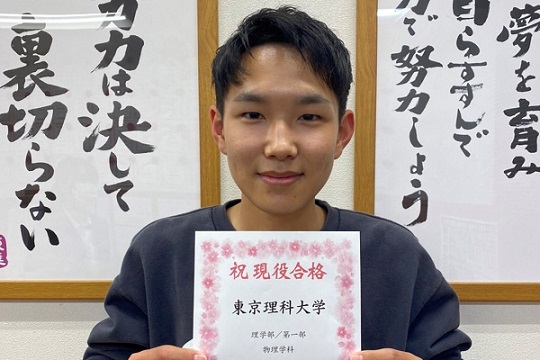 夢を育み
自らすすんで
力で努力しよう
力は決して
裏切らない
祝 現役合格
東京理科大学
理学部／第一部
物理学科